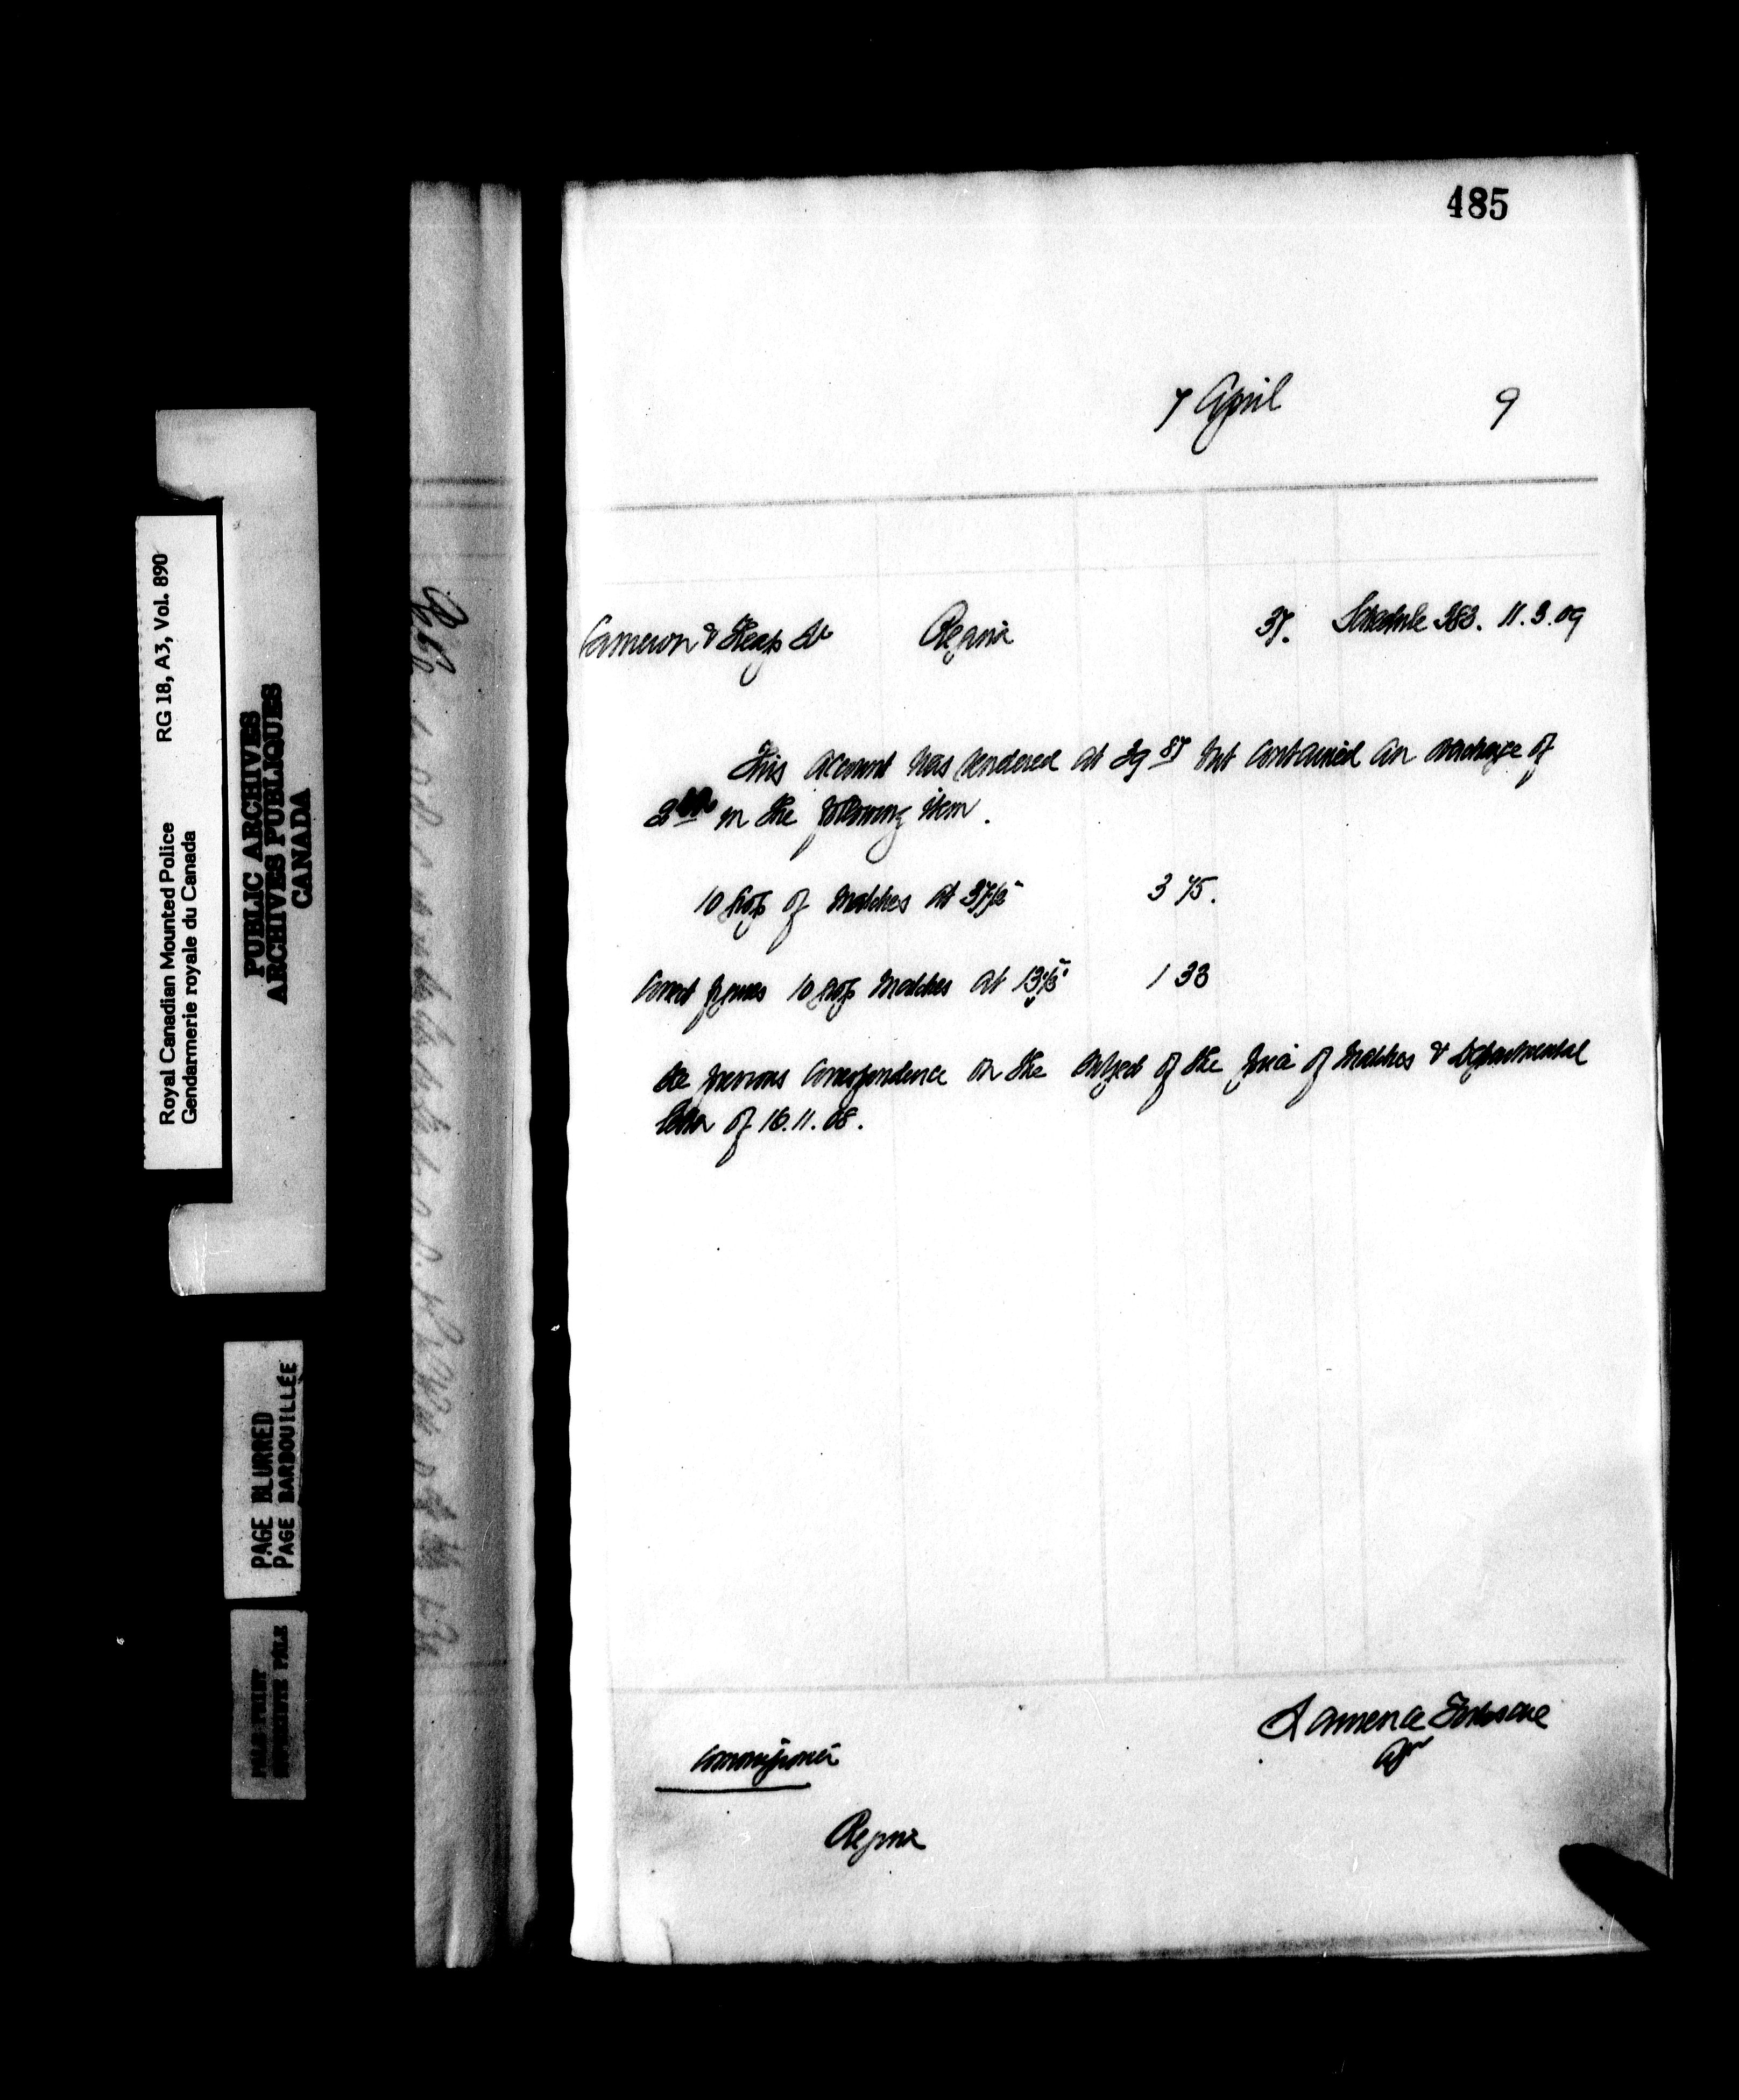 485
7 April 9
Cameron & Heap Ld Regina 37. Schedule 383. 11.3.09
This account was rendered at 39 87 but contained an overcharge of
2 in the following item.
10 of matches at 37½ 3 75.
Correct figures 10 matches at 13⅓ 1 33
See previous correspondence on the subject of the price of matches & Departmental
letter of 16.11.08.
Lawrence Fortescue
Commissioner
Regina
Royal Canadian Mounted Police RG 18, A3, Vol. 890
Gendarmerie royale du Canada
PUBLIC ARCHIVES
ARCHIVES PUBLIQUES
CANADA
PAGE BLURRED
PAGE BARBOUILLÉE